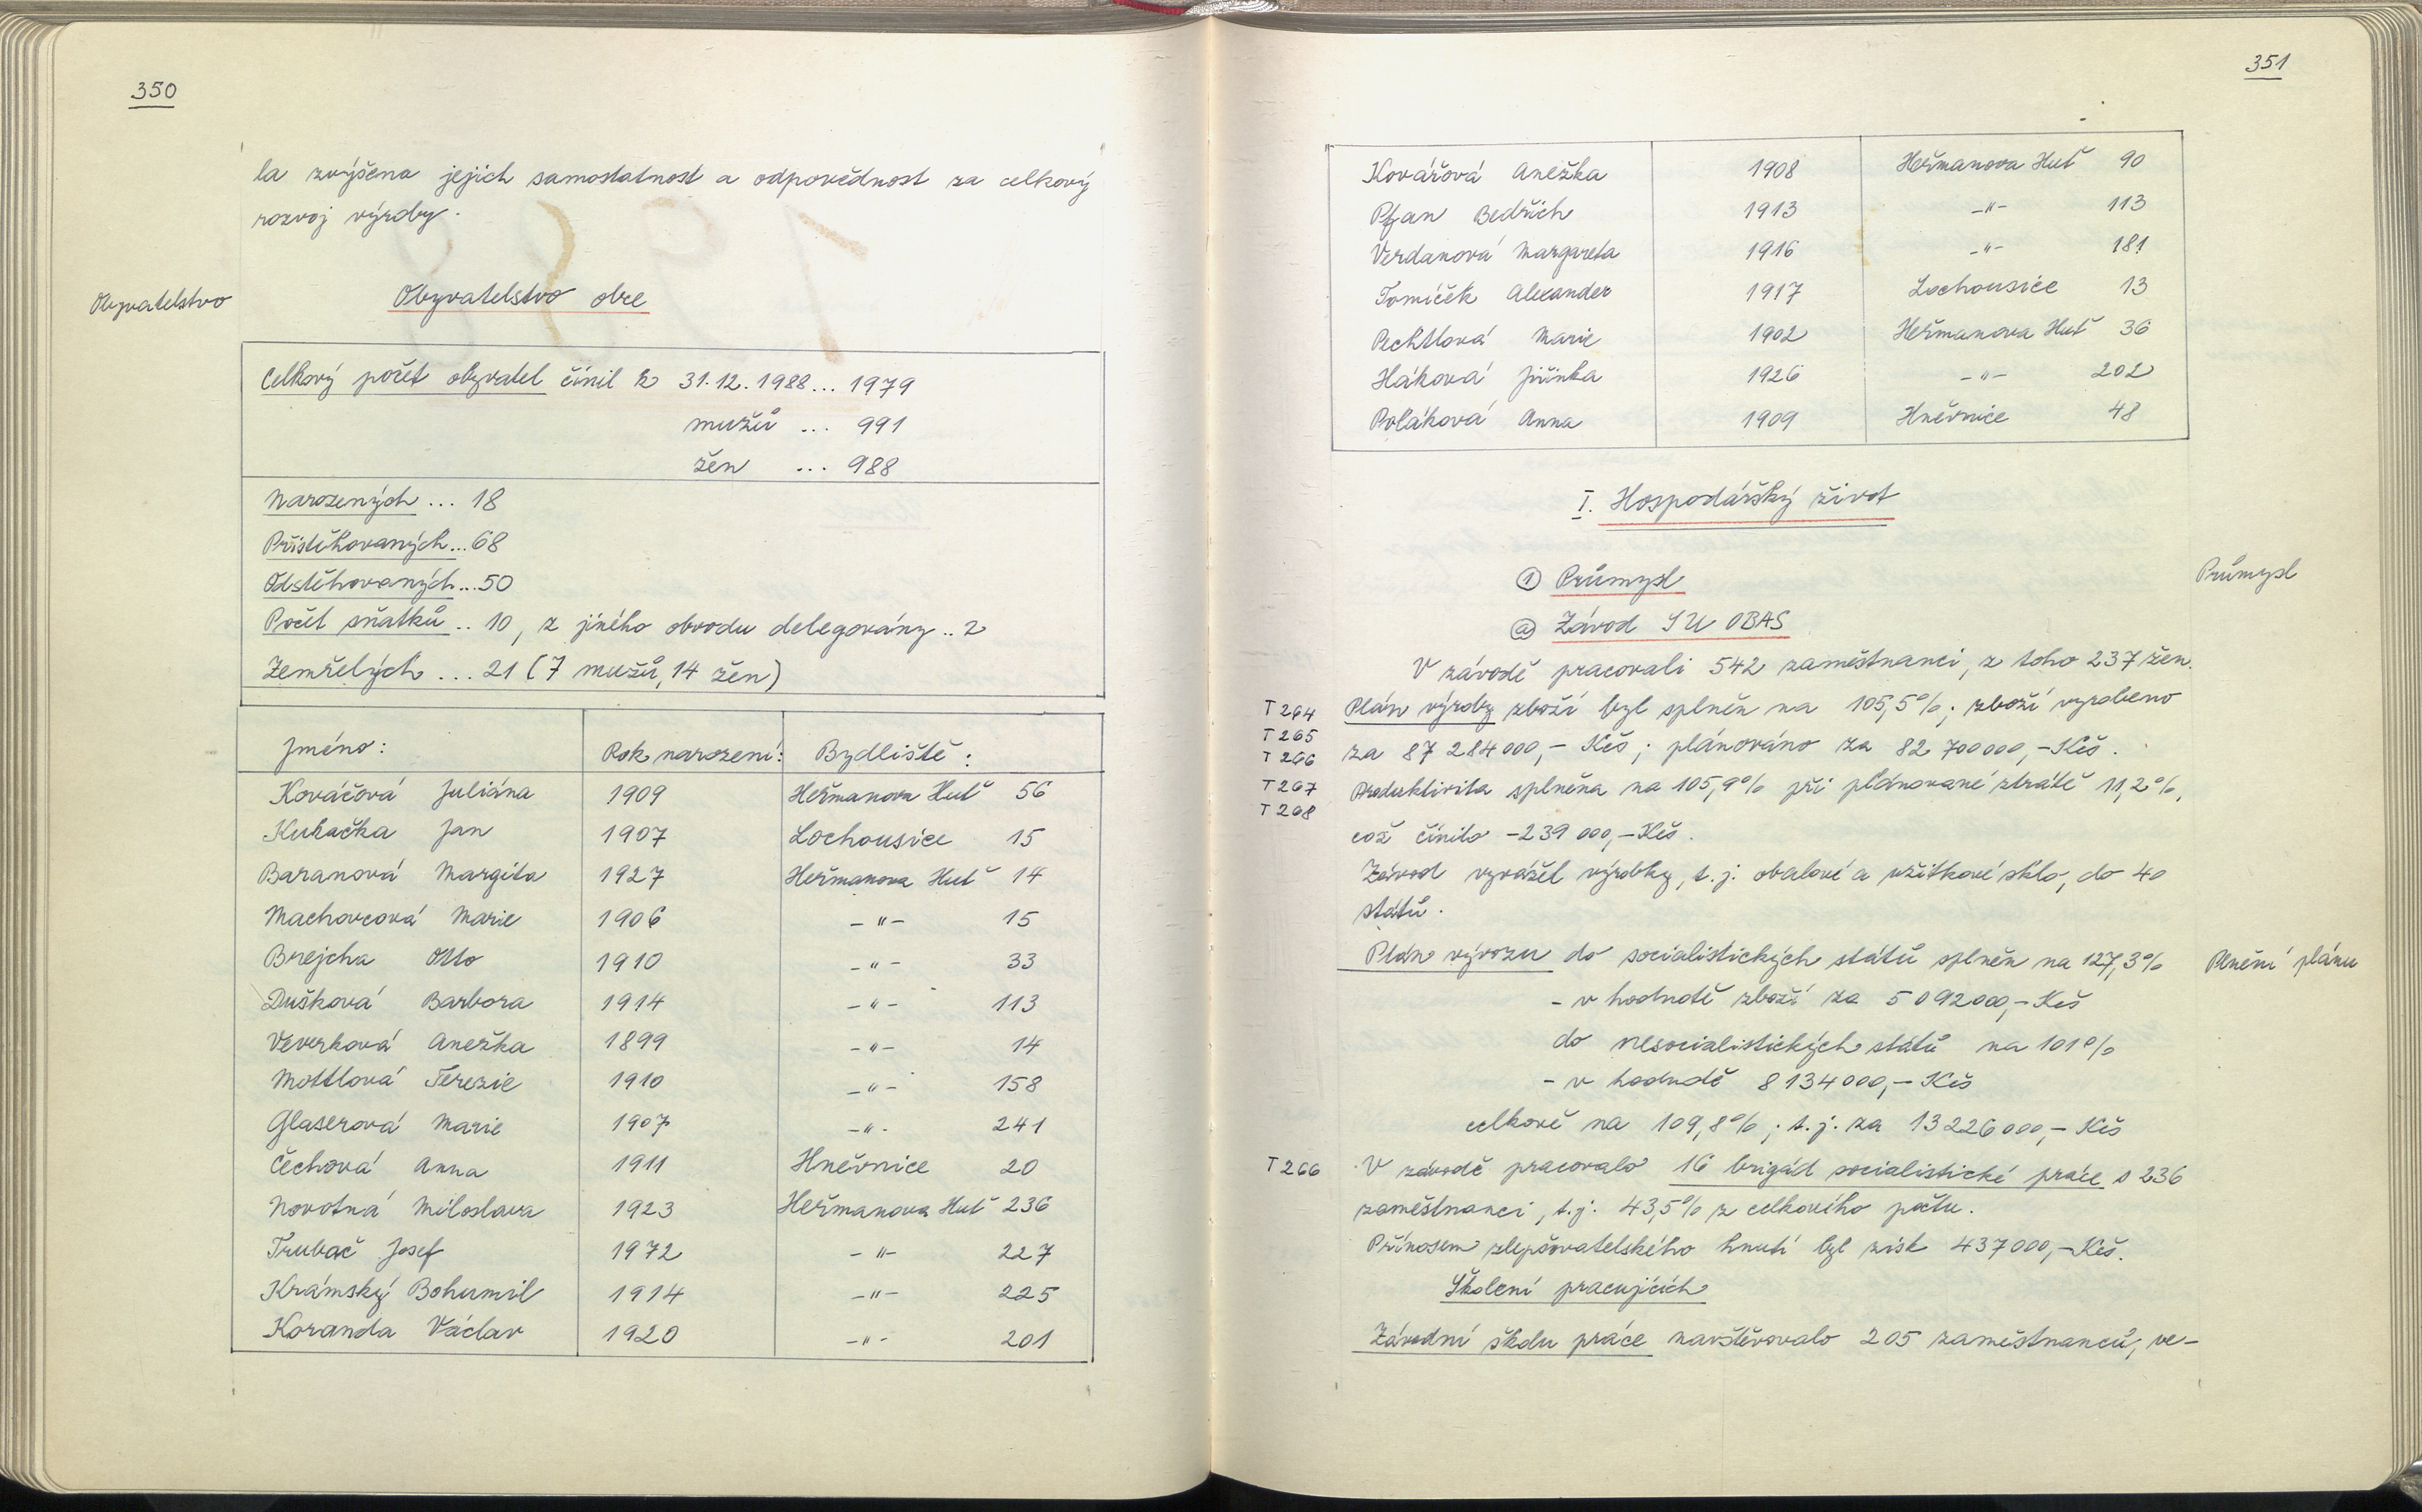 350
la zvýšena jejich samostatnost a odpovědnost za celkový
rozvoj výroby.
Obyvatelstvo
Obyvatelstvo obce
Celkový počet obyvatel činil k 31.12.1988... 1979
mužů ... 991
žen ... 988
Narozených ... 18
Přistěhovaných... 68
Odstěhovaných...50
Počet sňatků .. 10, z jiného obvodu delegovány .. 2
Zemřelých ... 21 (7 mužů, 14 žen)
Jméno: Rok narození: Bydliště:
Kováčová Juliána 1909 Heřmanova Huť 56
Kukačka Jan 1907 Lochousice 15
Baranová Margita 1927 Heřmanova Huť 14
Machovcová Marie 1906 -"- 15
Brejcha Otto 1910 -"- 33
Dušková Barbora 1914 -"- 113
Veverková Anežka 1899 -"- 14
Mottlová Terezie 1910 -"- 158
Glaserová Marie 1907 -"- 241
Čechová Anna 1911 Hněvnice 20
Novotná Miloslava 1923 Heřmanova Huť 236
Trubač Josef 1972 -"- 227
Krámský Bohumil 1914 -"- 225
Koranda Václav 1920 -"- 201
351
Kovářová Anežka 1908 Heřmanova Huť 90
Pfan Bedřich 1913 -"- 113
Verdanová Margareta 1916 -"- 181
Tomíček Alexander 1917 Lochousice 13
Pechtlová Marie 1902 Heřmanova Huť 36
Háková Jiřinka 1926 -"- 202
Poláková Anna 1909 Hněvnice 48
I. Hospodářský život
1 Průmysl
Průmysl
a Závod SU OBAS
V závodě pracovali 542 zaměstnanci, z toho 237 žen.
T 264 Plán výroby zboží byl splněn na 105,5%; zboží vyrobeno
T 265
T 266 za 87 284 000,- Kčs; plánováno za 82 700 000,- Kčs.
T 267 Produktivita splněna na 105,9% při plánované ztrátě 11,2%,
T 268
což činilo -239 000,- Kčs.
Závod vyvážel výrobky, t.j. obalové a užitkové sklo, do 40
států.
Plán vývozu do socialistických států splněn na 127,3%
Plnění plánu
- v hodnotě zboží za 5 092 000,- Kčs
do nesocialistických států na 101%
- v hodnotě 8 134 000,- Kčs
celkově na 109,8%; t.j. za 13 226 000,- Kčs
T 266 V závodě pracovalo 16 brigád socialistické práce s 236
zaměstnanci, t.j. 43,5% z celkového počtu.
Přínosem zlepšovatelského hnutí byl zisk 437 000,- Kčs.
Školení pracujících
Závodní školu práce navštěvovalo 205 zaměstnanců, ve-